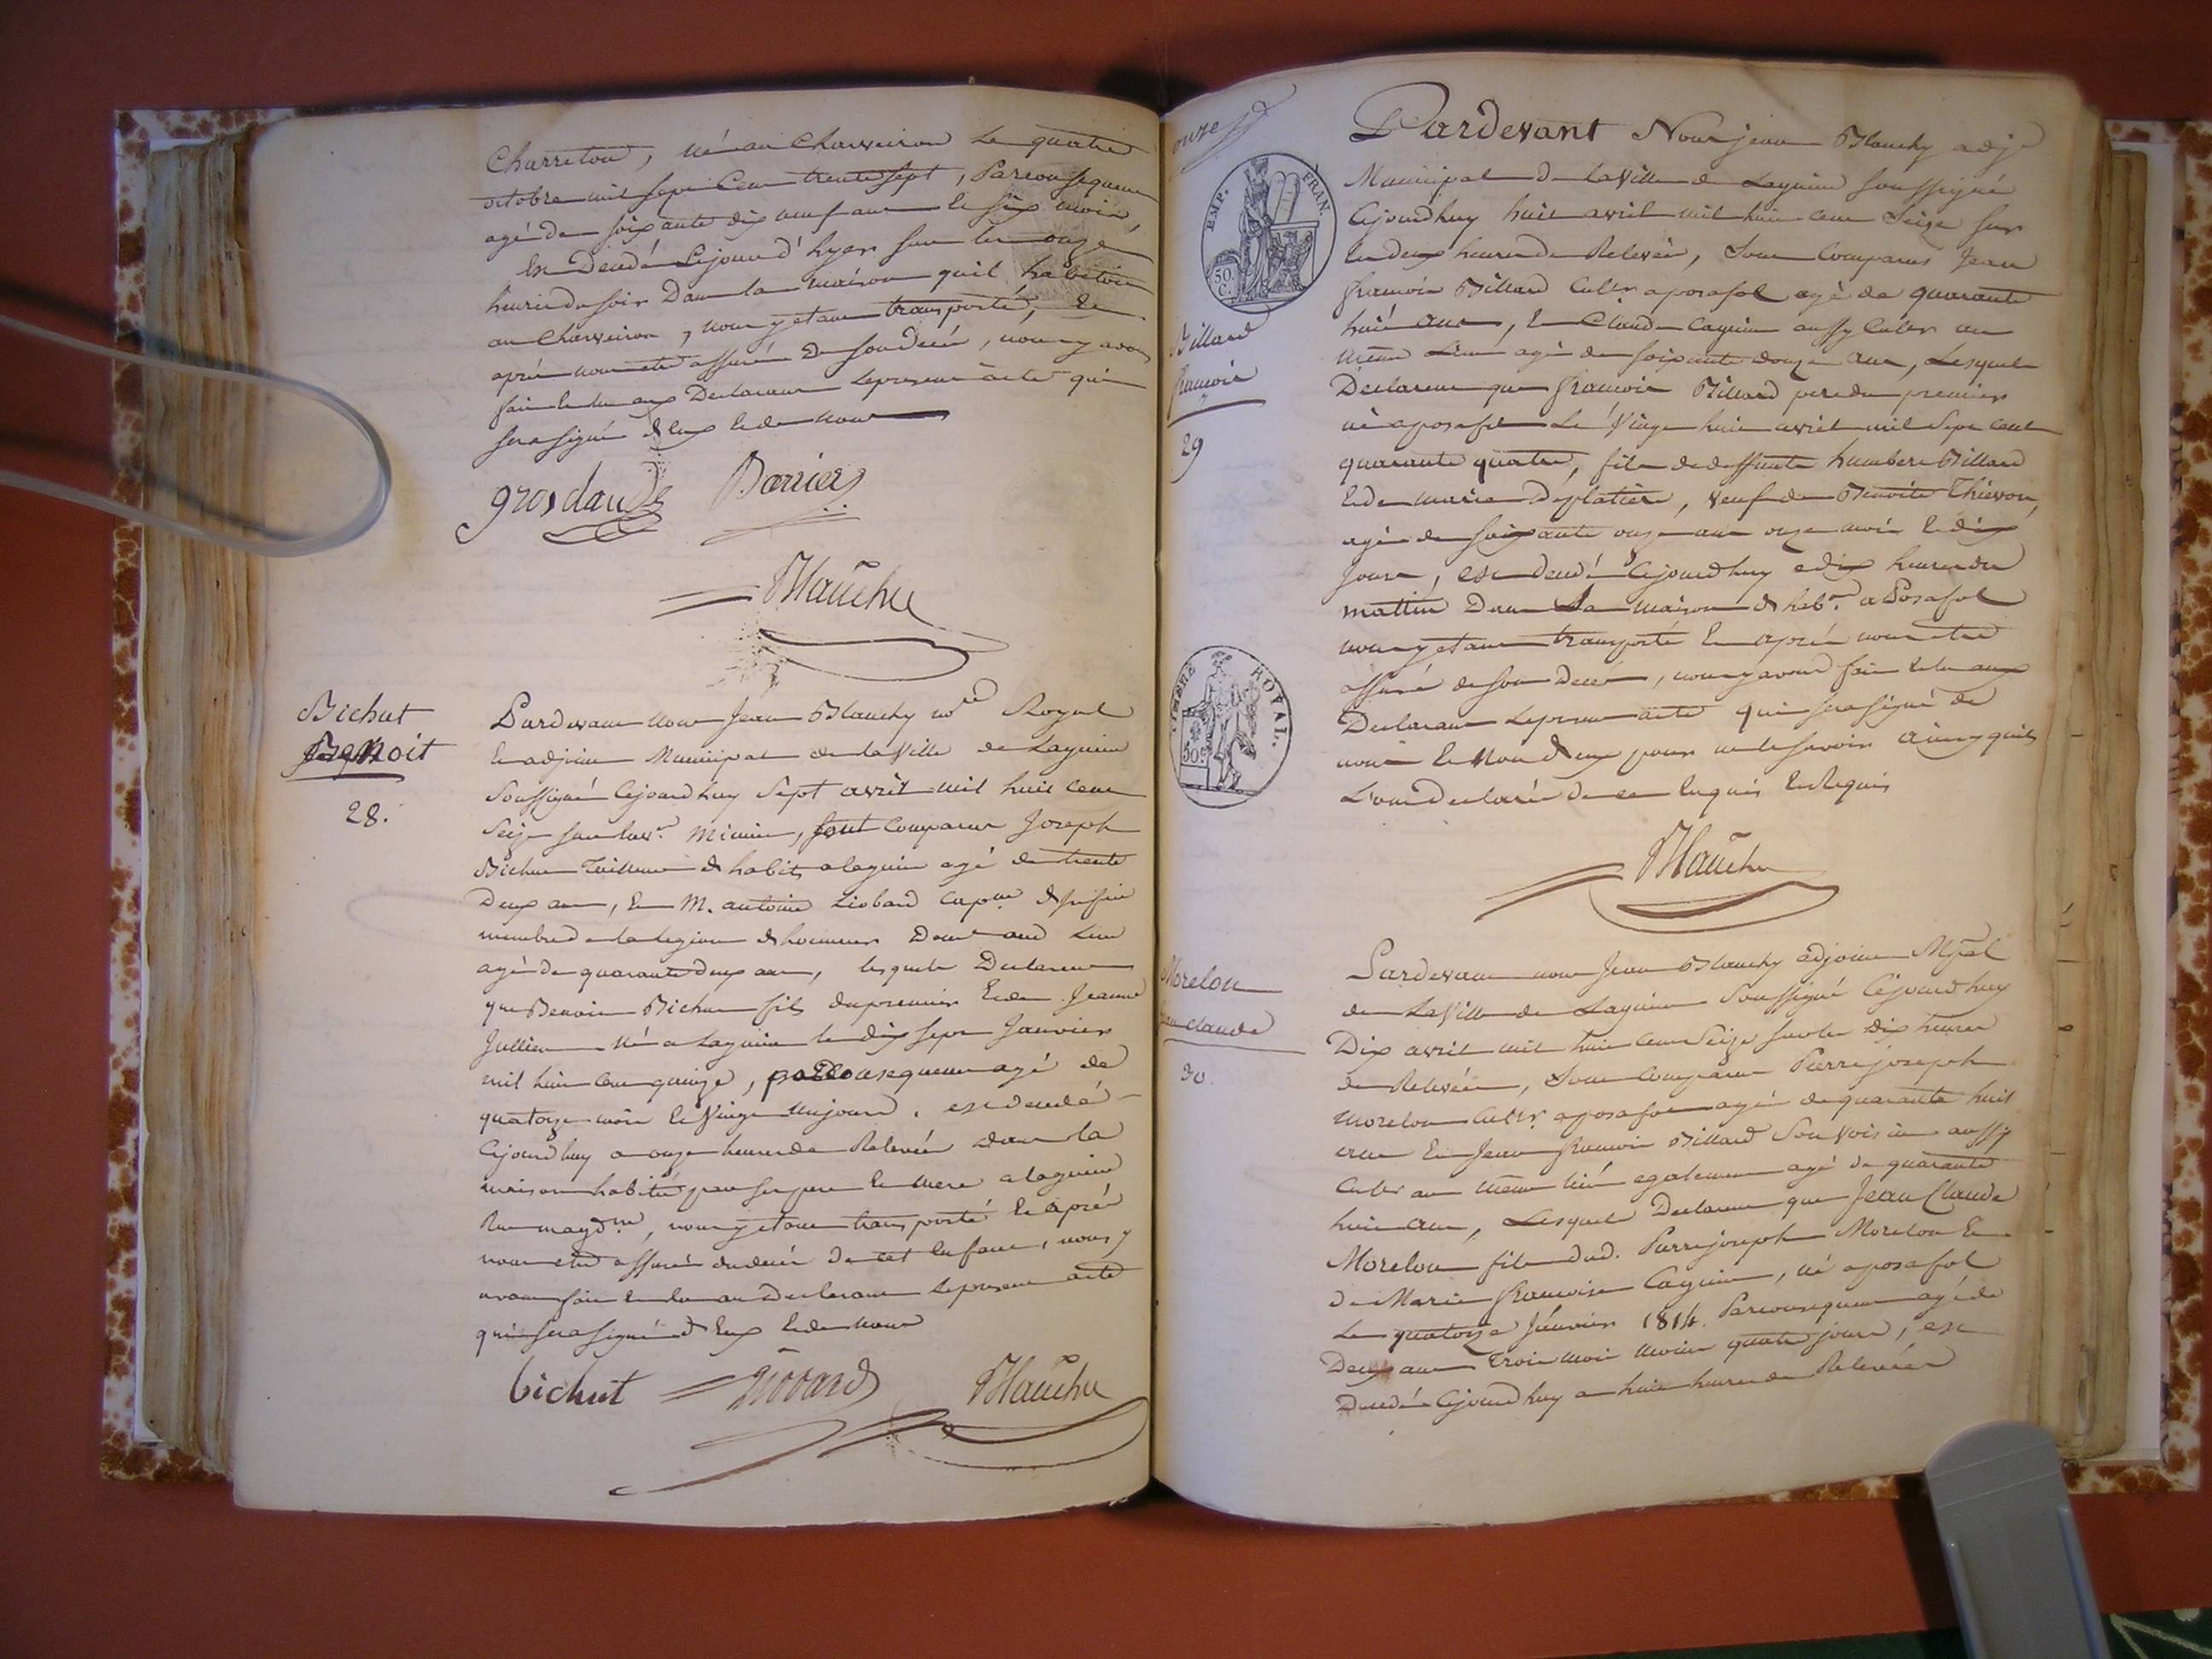 Charreton, né au Charveiron le quatre
octobre mil sept cent trente sept, Parconsequent
agé de soixante dix neuf ans et six mois,
Est Decedé Lejourd'hyer sur les onze
heures du soir Dans la maison quil habitoit
au Charveiron, nous y etant transporté, et
aprés nous etre assuré de son Decés, nous y avons
fait et lu aux Declarans le present acte qui
sera signé d'Eux et de nous
grosclaude Barrier
Blanchy
Bichat
Benoit
28.
Pardevant nous Jean Blanchy nre Royal
et adjoint Municipal de la Ville de Lagnieu
Soussigné Cejourd'huy Sept avril mil huit cent
Seize sur les Midi, sont comparus Joseph
Bichat Tailleur d'habits a lagnieu agé de trente
Deux ans, et M. antoine Liobard
membre de la legion d'honneur lieu
agé de quarante deux ans, lesquels Declarent
que Benoit Bichat fils du premier et de Jeanne
Jullien né a Lagnieu le dix sept Janvier
mil huit cent quinze, parconsequent agé de
quatorze mois et Vingt un jours, est decedé
Cejourd'huy a onze heures de Relevée Dans la
maison habitée par ses pere et mere a lagnieu
Rue, nous y etant transporté et aprés
nous etre assuré du decés de cet Enfant, nous y
avons fait et lu aux Declarans le present acte
qui sera signé d'Eux et de nous
bichat Liobard Blanchy
onze
EMP. FRAN.
50 C.
Billard
françois
29
TIMBRE ROYAL.
50 c
Pardevant Nous jean Blanchy adjt
Municipal de la Ville de Lagnieu soussigné
Cejourd'huy huit avril mil huit cent Seize sur
les deux heures de Relevée, Sont Comparus Jean
françois Billard Cultr a posafol agé de quarante
huit ans, et Claude Cagnin aussy Cultr au
même Lieu agé de soixante douze ans, Lesquels
Declarent que françois Billard pere du premier
né a posafol Le Vingt huit avril mil Sept cent
quarante quatre, fils de deffunts humbert Billard
Et de marie Deplatiere, veuf de Benoite Thievon,
agé de soixante onze ans onze mois et dix
Jours, est decedé Cejourd'huy a dix heures du
mattin Dans Sa maison d'habon a Posafol
nous y etant transporté et aprés nous etre
assuré de son Decés, nous y avons fait et lu aux
Declarans le present acte qui sera signé de
nous et Non d'eux pour ne le savoir ainsy quils
L'ont declaré de ce Enquis et Requis
Blanchy
Morelon
jean Claude
30.
Pardevant nous Jean Blanchy adjoint Mpal
de La Ville de Lagnieu Soussigné Cejourd'huy
Dix avril mil huit cent Seize sur les dix heures
de Relevée, Sont Comparus Pierre joseph
Morelon Cultr a posafol agé de quarante huit
ans Et Jean françois Billard Son Voisin aussy
Cultr au même lieu egalement agé de quarante
huit ans, Lesquels Declarent que Jean Claude
Morelon fils dud. Pierre joseph Morelon Et
de Marie françoise Cagnin, né a posafol
Le quatorze Janvier 1814. Parconsequent agé de
Deux ans Trois mois moins quatre jours, est
Decedé Cejourd'huy a huit heures de Relevée